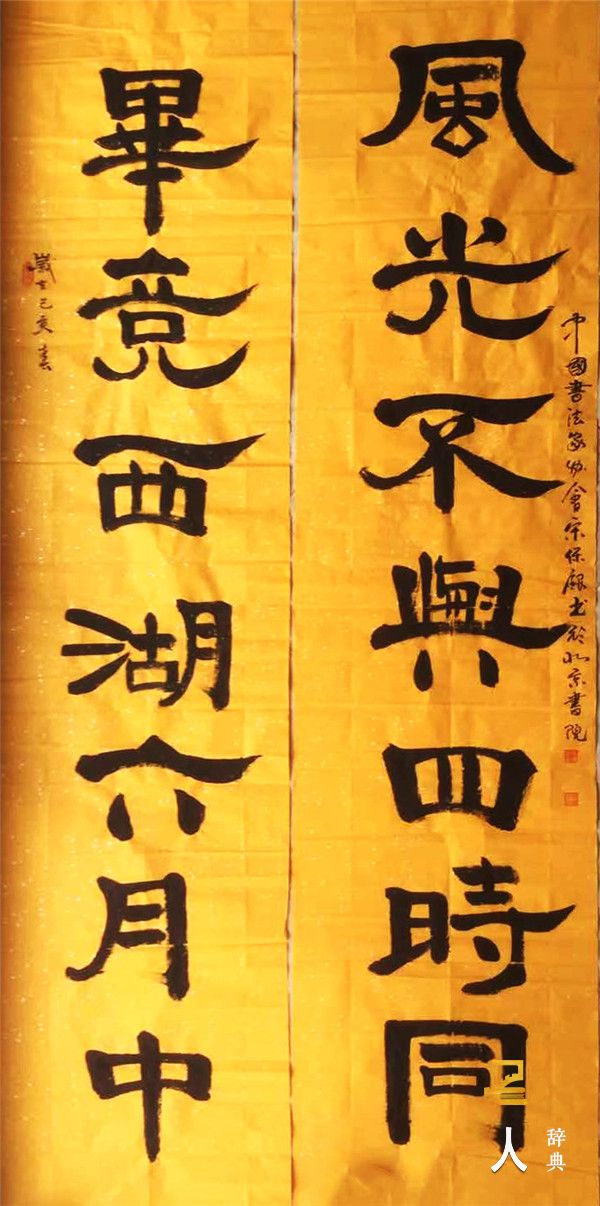 歲在己亥春
畢竟西湖六月中
風光不與四時同
中國書法家協會宋保書於北京書院
人
辞典